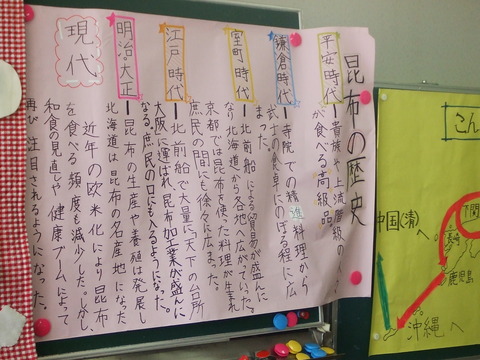 昆布の歴史
平安時代―貴族や上流階級の人々
が食べる高級品。
鎌倉時代―寺院での精進料理から
武士の食卓にのぼる程に広
まった。
室町時代―北前船による貿易が盛んに
なり北海道から各地へ広がていった。
京都では昆布を使った料理が生まれ
庶民の間にも徐々に広まった。
江戸時代―北前船で大量に天下の台所
大阪に運ばれ、昆布加工業が盛んに
なる。庶民の口にも入るようになった。
明治・大正―昆布の生産や養殖は発展し
北海道は昆布の名産地になった
現代
近年の欧米化により昆布
を食べる頻度も減少した。しかし、
和食の見直しや健康ブームによって
再び注目されるようになった。
こん
下関
中国(清)
へ
長崎
鹿児島
沖縄へ